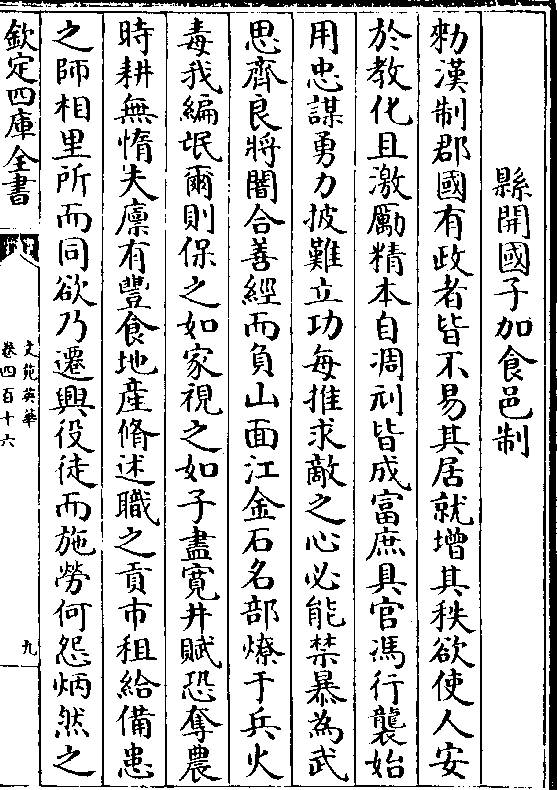 縣開國子加食邑制
勑漢制郡國有政者皆不易其居就增其秩欲使人安
於教化且激厲精本自凋刓皆成富庶具官馮行襲始
用忠謀勇力披難立功每推求敵之心必能禁暴為武
思齊良將闇合善經而負山面江金石名部燎于兵火
毒我編氓爾則保之如家視之如子盡寛井賦恐奪農
時耕無惰夫廪有豐食地産脩述職之貢市租給備患
之師相里所而同欲乃遷興役徒而施勞何怨炳然之
欽定四庫全書
文苑英華
卷四百十六
九